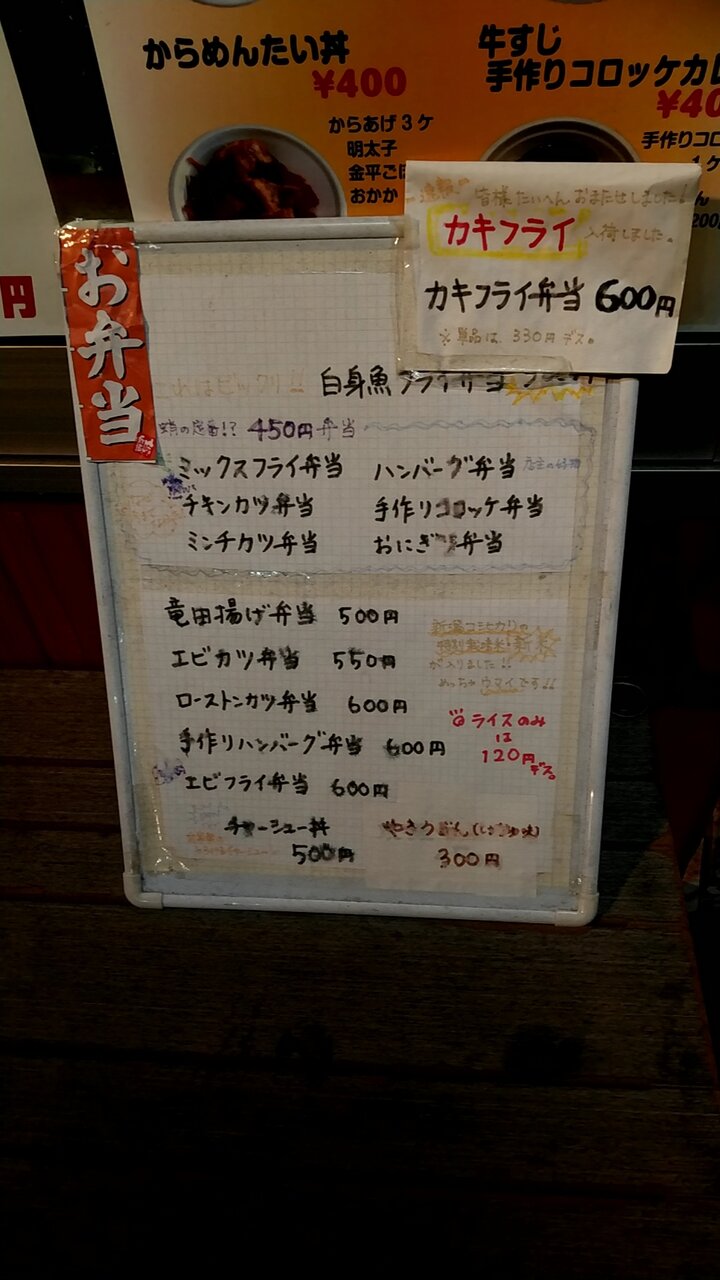 からめんたい丼
¥400
からあげ3ケ
明太子
金平ごぼ
おかか
牛すじ
手作りコロッケカレ
¥40
手作りコロ
1ケ
200
円
皆様たいへんおまたせしました!
カキフライ 入荷しました。
カキフライ弁当 600円
※単品は、330円デス。
お弁当
これはビックリ!! 白身魚フライ弁当
の定番!? 450円弁当
ミックスフライ弁当 ハンバーグ弁当
チキンカツ弁当 手作りコロッケ弁当
ミンチカツ弁当 おにぎ 弁当
竜田揚げ弁当 500円
エビカツ弁当 550円
ローストンカツ弁当 600円
手作りハンバーグ弁当 600円
エビフライ弁当 600円
新潟コシヒカリの
特別栽培米 新米
が入りました!!
めっちゃウマイです!!
ライスのみ
は
120円デス。
チャーシュー丼
500円
やきうどん
300円